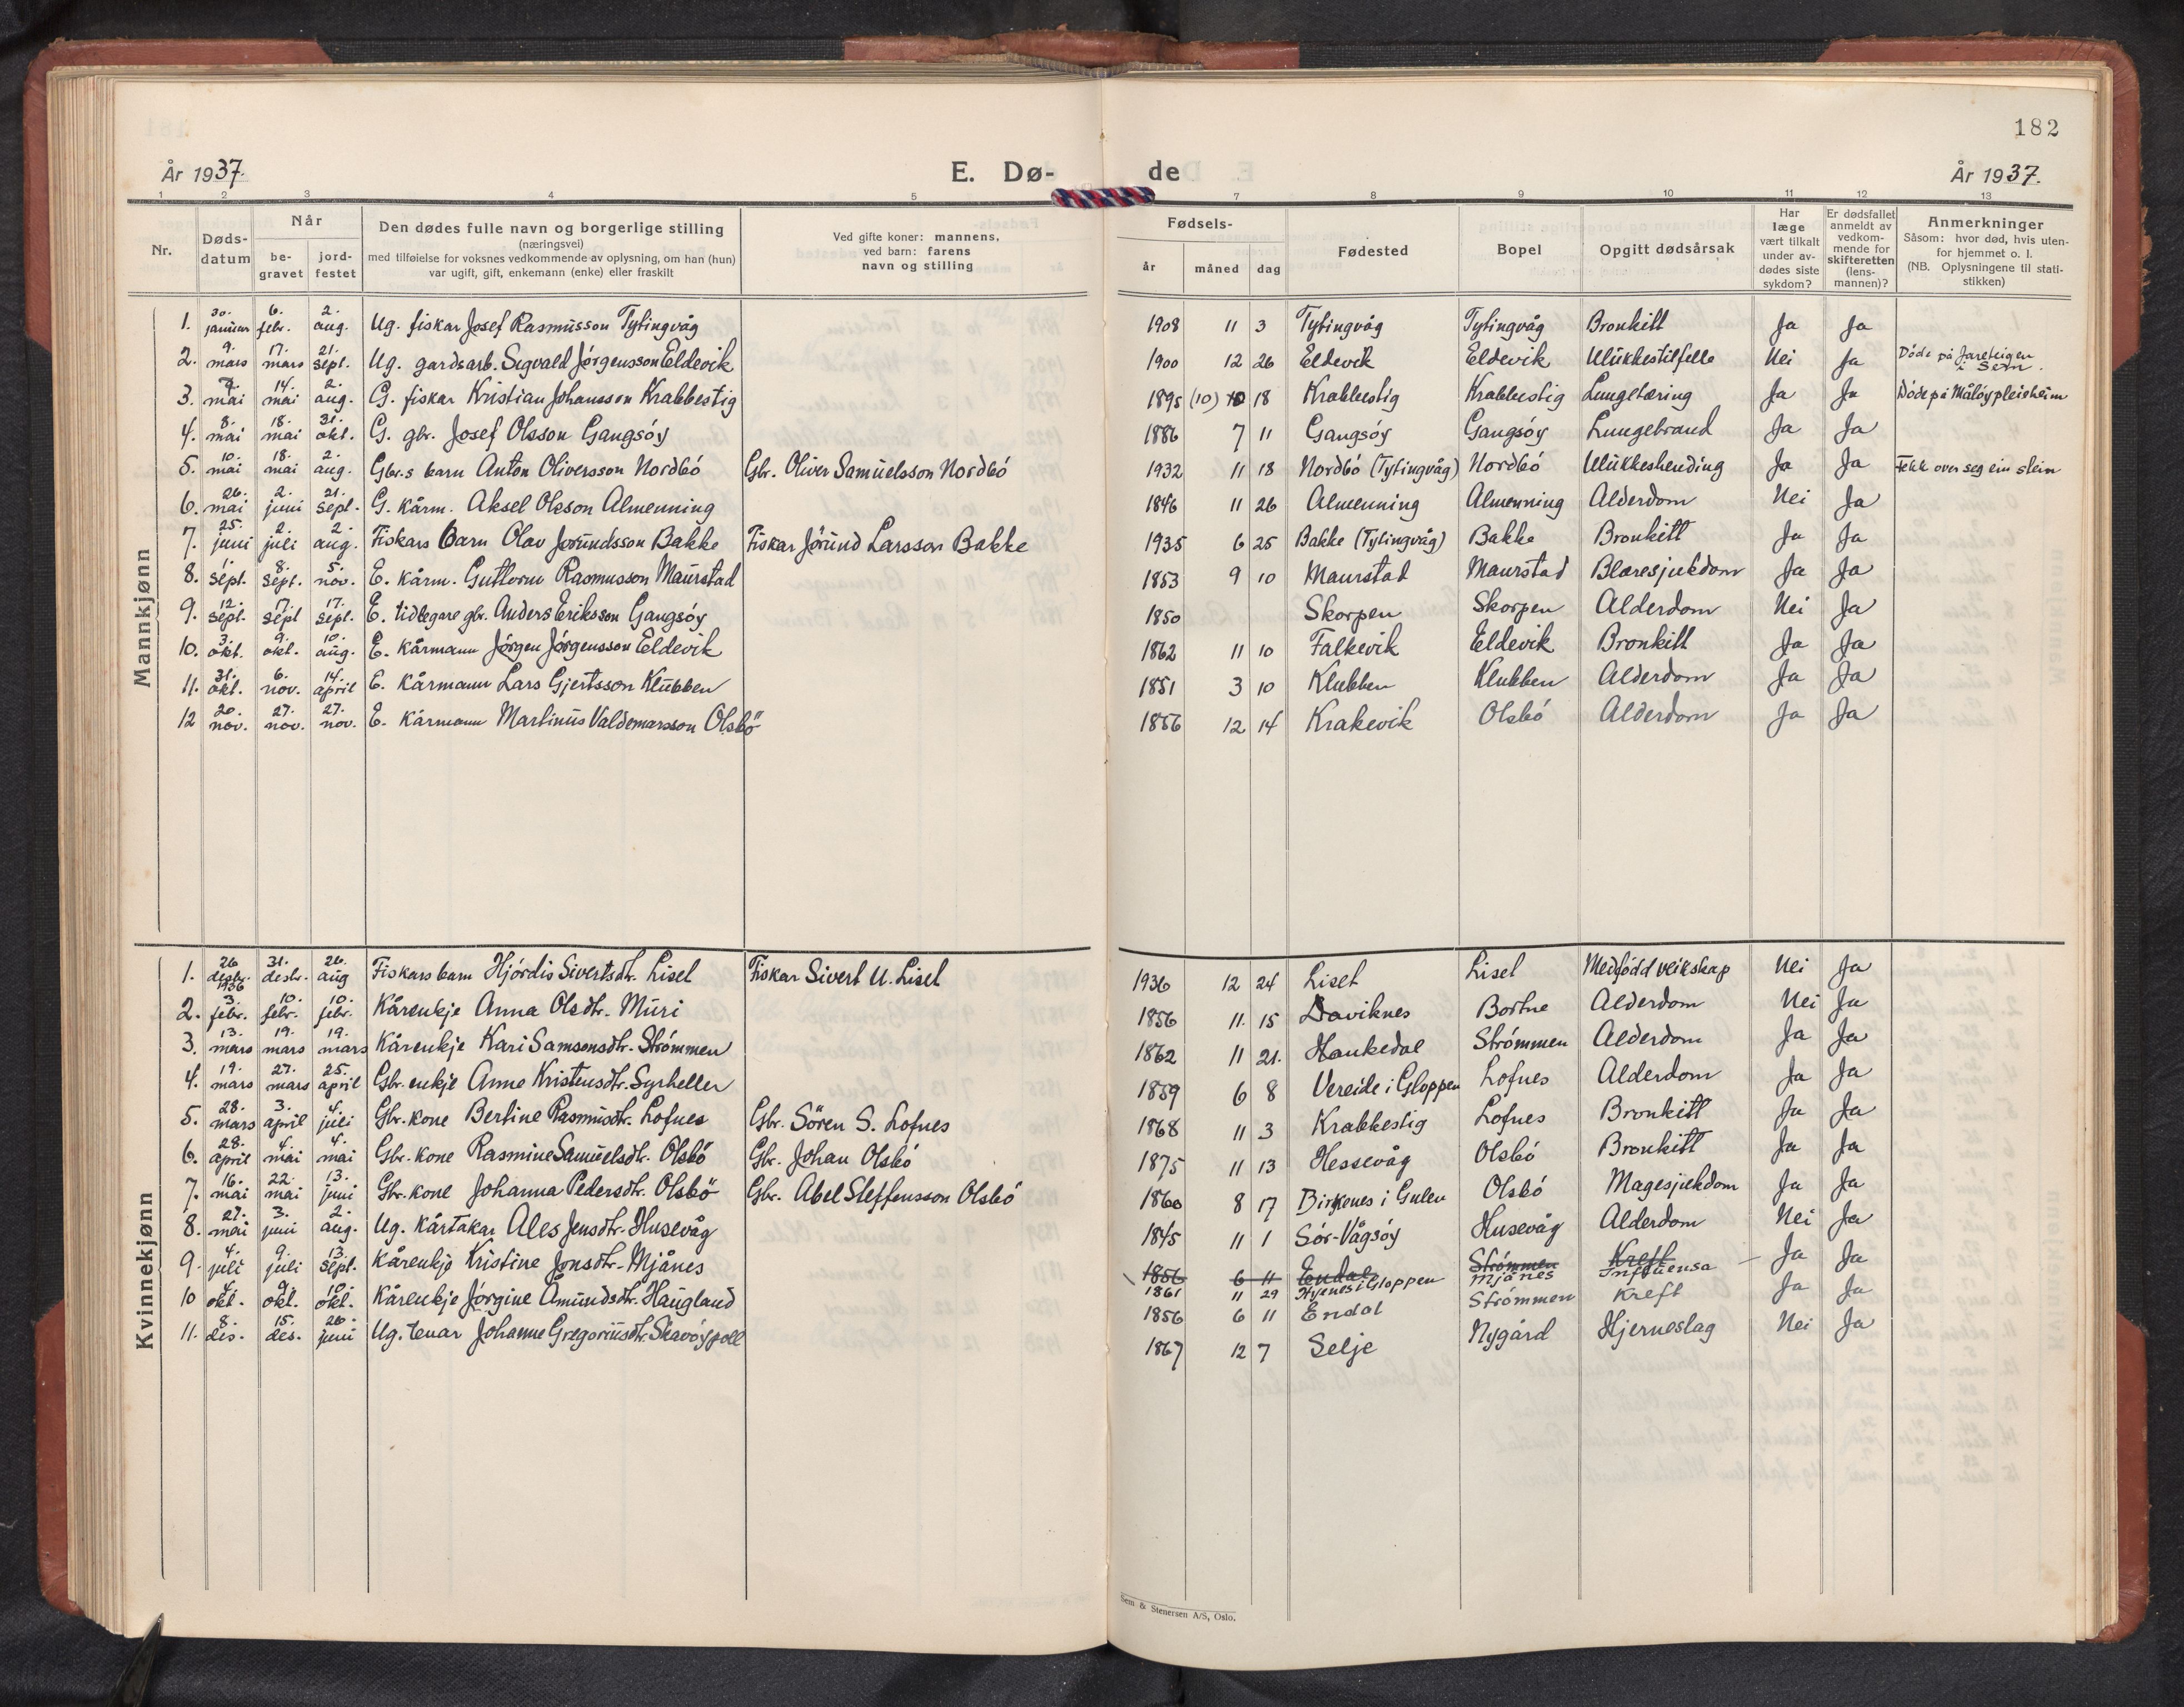 182
År 1937.
E. Dø-
de
År 1937.
1 2 3 4 5 7 8 9 10 11 12 13
Nr.
Døds-
datum
Når
be-
gravet
jord-
festet
Den dødes fulle navn og borgerlige stilling
(næringsvei)
med tilføielse for voksnes vedkommende av oplysning, om han (hun)
var ugift, gift, enkemann (enke) eller fraskilt
Ved gifte koner: mannens,
ved barn: farens
navn og stilling
Fødsels-
år
måned
dag
Fødested
Bopel
Opgitt dødsårsak
Har
læge
vært tilkalt
under av-
dødes siste
sykdom?
Er dødsfallet
anmeldt av
vedkom-
mende for
skifteretten
(lens-
mannen)?
Anmerkninger
Såsom: hvor død, hvis uten-
for hjemmet o. l.
(NB. Oplysningene til stati-
stikken)
Mannkjønn
1. 30. januar 6. febr. 2. aug. Ug. fiskar Josef Rasmusson Tytingvåg 1908 11 3 Tytingvåg Tytingvåg Bronkitt Ja Ja
2. 9. mars 17. mars 21. sept. Ug. gardsarb. Sigvald Jørgensson Eldevik 1900 12 26 Eldevik Eldevik Ulukkestilfelle Nei Ja Døde på Jareteigen i Sem.
3. 9. mai 14. mai 2. aug. G. fiskar Kristian Johansson Krabbestig 1895 (10) 10 18 Krabbestig Krabbestig Lungetæring Ja Ja Døde på Måløy pleieheim
4. 8. mai 18. mai 31. okt. G. gbr. Josef Olsson Gangsøy 1886 7 11 Gangsøy Gangsøy Lungebrand Ja Ja
5. 10. mai 18. mai 2. aug. Gbr.s barn Anton Oliversson Nordbó Gbr. Oliver Samuelsson Nordbó 1932 11 18 Nordbó (Tytingvåg) Nordbó Ulukkeshending Ja Ja Fekk over seg ein stein
6. 26. mai 2. juni 21. sept. G. kårm. Aksel Olsson Almenning 1846 11 26 Almenning Almenning Alderdom Nei Ja
7. 25. juni 2. juli 2. aug. Fiskars barn Olav Jørundsson Bakke Fiskar Jørund Larsson Bakke 1935 6 25 Bakke (Tytingvåg) Bakke Bronkitt Ja Ja
8. 1. sept. 8. sept. 5. nov. E. kårm. Guttorm Rasmusson Maurstad 1853 9 10 Maurstad Maurstad Blæresjukdom Ja Ja
9. 12. sept. 17. sept 17. sept. E. tidlegare gbr. Anders Eriksson Gangsøy 1850 Skorpen Skorpen Alderdom Nei Ja
10. 3. okt. 9. okt. 10. aug. E. kårmann Jørgen Jørgensson Eldevik 1862 11 10 Falkevik Eldevik Bronkitt Ja Ja
11. 31. okt. 6. nov. 14. april E. kårmann Lars Gjertsson Klubben 1851 3 10 Klubben Klubben Alderdom Ja Ja
12 20. nov. 27. nov. 27. nov. E. kårmann Martinus Valdemarsson Olsbö 1856 12 14 Krakevik Olsbó Alderdom Ja Ja
Kvinnekjønn
1. 26 desbr. 1936 31. desbr. 26. aug Fiskars barn Hjördis Sivertsdtr. Liset Fiskar Sivert U. Liset 1936 12 24 Liset Liset Medfødd veikskap Nei Ja
2. 3. febr. 10. febr. 10. febr. Kårenkje Anna Olsdtr. Muri 1856 11. 15 Daviknes Bortne Alderdom Nei Ja
3. 13. mars 19. mars 19. mars Kårenkje Kari Samsonsdtr. Strømmen 1862 11 21. Haukedal Strømmen Alderdom Ja Ja
4. 19. mars 27. mars 25. april Gbr. enkje Anne Kristensdtr. Syrheller 1859 6 8 Vereide i Gloppen Lofnes Alderdom Ja Ja
5. 28. mars 3. april 4. juli Gbr. kone Bertine Rasmusdtr. Lofnes Gbr. Sören S. Lofnes 1868 11 3 Krabbestig Lofnes Bronkitt Ja Ja
6. 28. april 4. mai 4. mai Gbr. kone Rasmine Samuelsdtr. Olsbó Gbr. Johan Olsbó 1875 11 13 Hessevåg Olsbó Bronkitt Ja Ja
7. 16. mai 22. mai 13. juni Gbr. kone Johanna Pedersdtr. Olsbö Gbr. Abel Steffensson Olsbó 1860 8 17 Birkenes i Gulen Olsbó Magesjukdom Ja Ja
8. 27. mai 3. juni 2. aug. Ug. kårtakar Ales Jensdtr. Husevåg 1845 11 1 Sør-Vågsøy Husevåg Alderdom Nei Ja
9. 4. juli 9. juli 13. sept. Kårenkje Kristine Jonsdtr. Mjånes 1856 6 11 Endal Strømmen Kreft Ja Ja
1861 11 29 Hyenes i Gloppen Mjånes Influensa
10 4. okt. 9. okt. 10. okt. Kårenkje Jørgine Amundsdtr. Haugland 1856 6 11 Endal Strømmen Kreft Ja Ja
11. 8. des. 15. des. 20. juni Ug. tenar Johanne Gregoriusdtr. Skavøypoll 1867 12 7 Selje Nygård Hjerneslag Nei Ja
Sem & Stenersen A/S, Oslo.